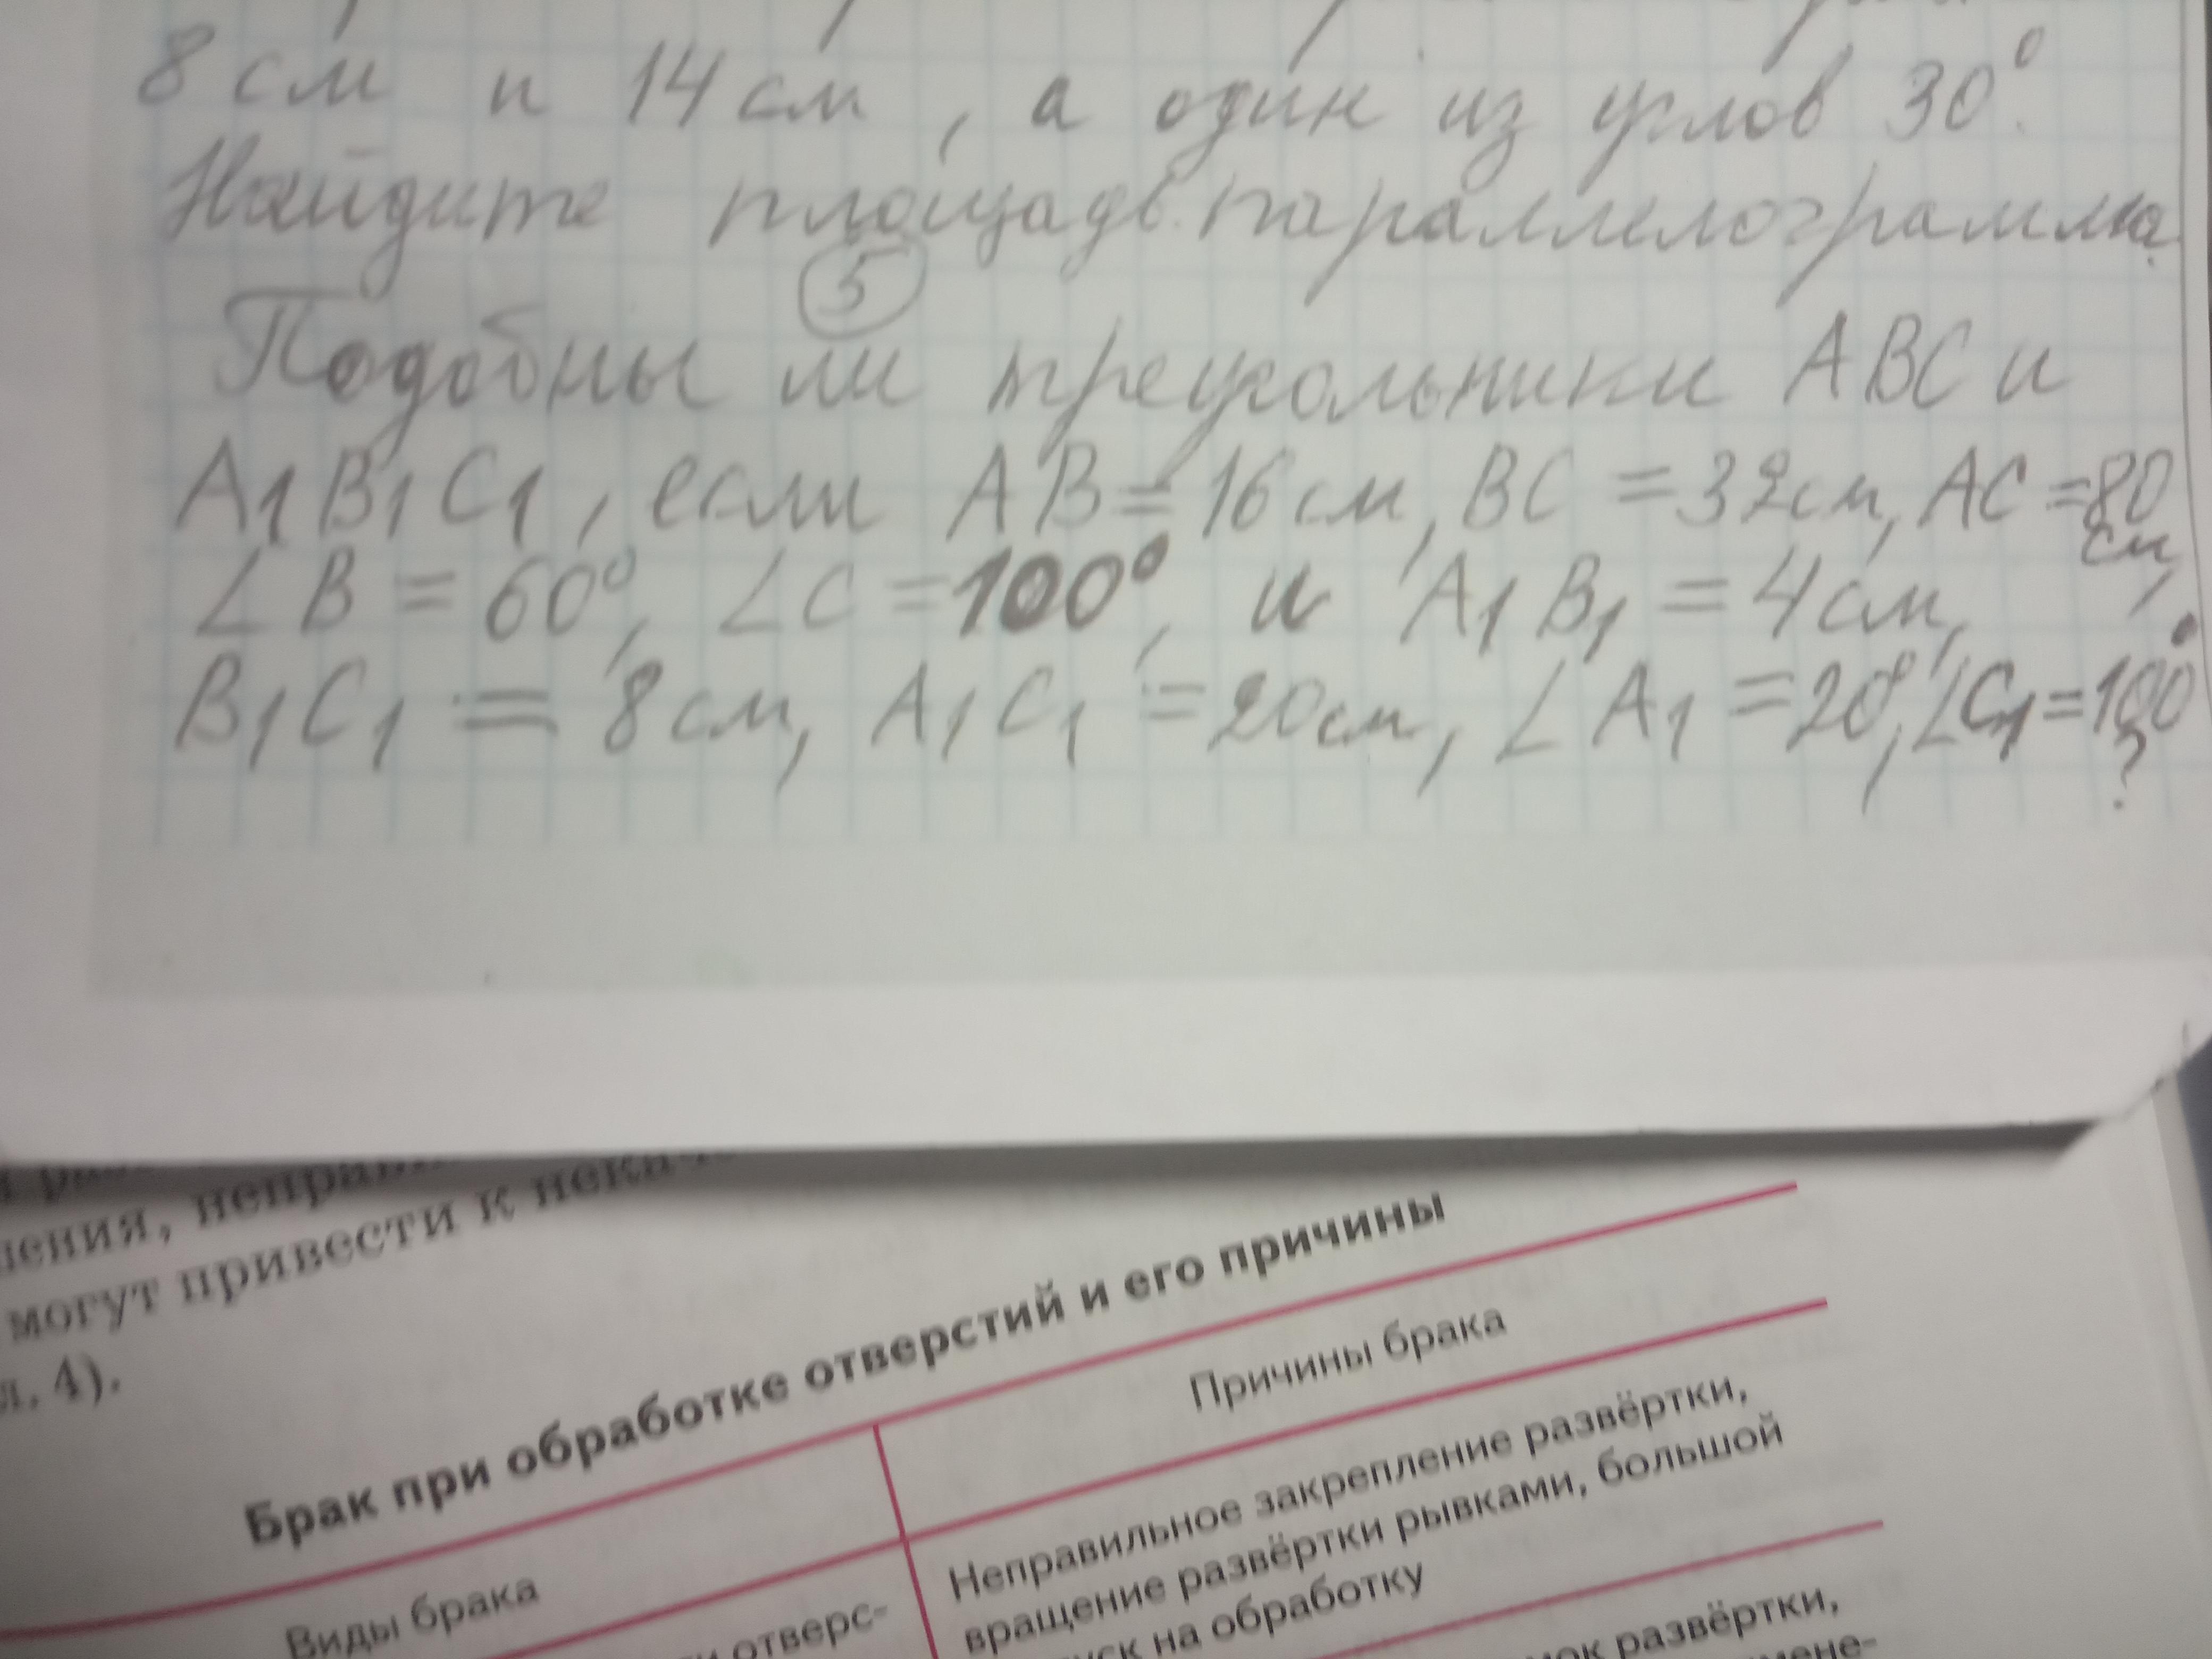 8 см и 14 см, а один из углов 30°.
Найдите площадь параллелограмма.
5
Подобны ли треугольники ABC и
A1B1C1, если AB = 16 см, BC = 32 см, AC = 80
см,
∠B = 60°, ∠C = 100°, и A1B1 = 4 см,
B1C1 = 8 см, A1C1 = 20 см, ∠A1 = 20°, ∠C1 = 100°
?
могут привести к
л. 4).
Брак при обработке отверстий и его причины
Виды брака
Причины брака
Неправильное закрепление развёртки,
вращение развёртки рывками, большой
на обработку
отверс-
развёртки,